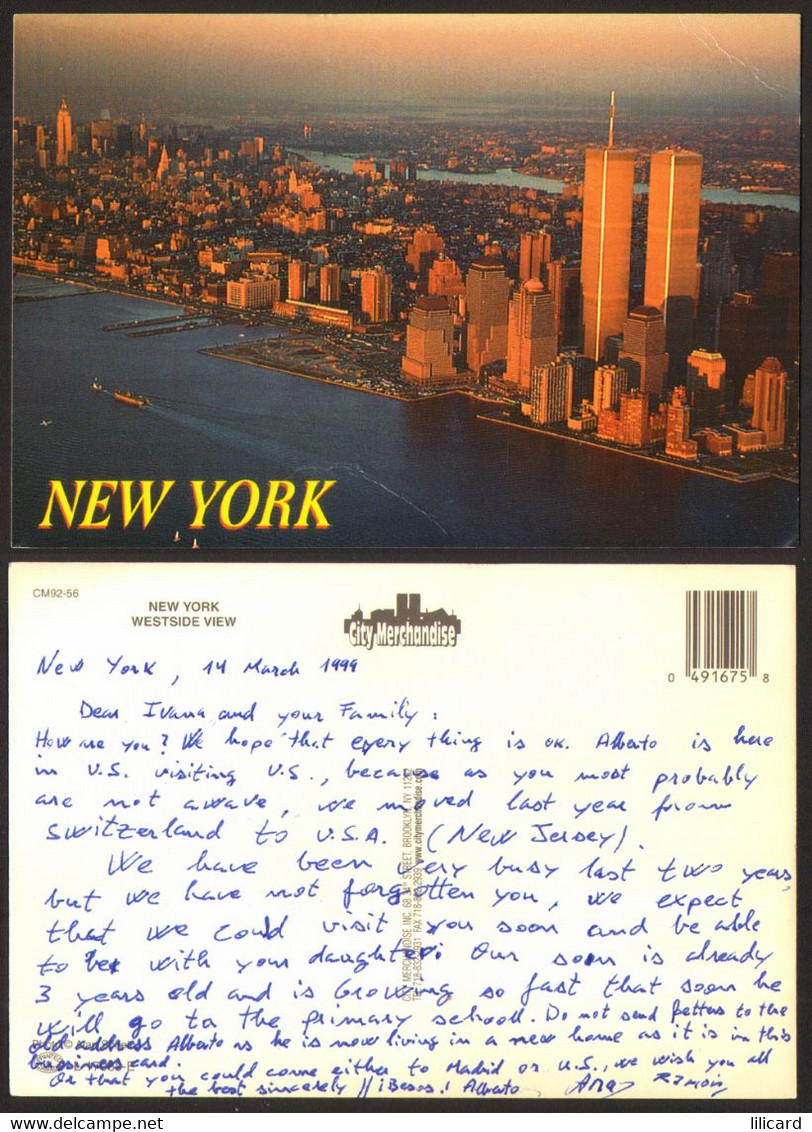 NEW YORK
CM92-56
NEW YORK
WESTSIDE VIEW
City Merchandise
0 491675 8
New York, 14 March 1999
Dear Ivana and your Family:
How are you? We hope that every thing is ok. Alberto is here
in U.S. visiting U.S., because as you most probably
are not awave, we moved last year from
Switzerland to U.S.A. (New Jersey).
We have been very busy last two years,
but we have not forgotten you, we expect
that we could visit you soon and be able
to be with your daughter. Our soon is already
3 years old and is Growing so fast that soon he
will go to the primary school. Do not send letters to the
old address Alberto as he is now living in a new home as it is in this
business card.
Or that you could come either to Madrid or U.S., we wish you all
the best sincerely // ¡Besos! Alberto Ana Ramón
CITY MERCHANDISE INC. 68 34th STREET, BROOKLYN, NY 11232
TEL 718-832-2931 FAX 718-832-2939 www.citymerchandise.com
Photo ©
lilicard